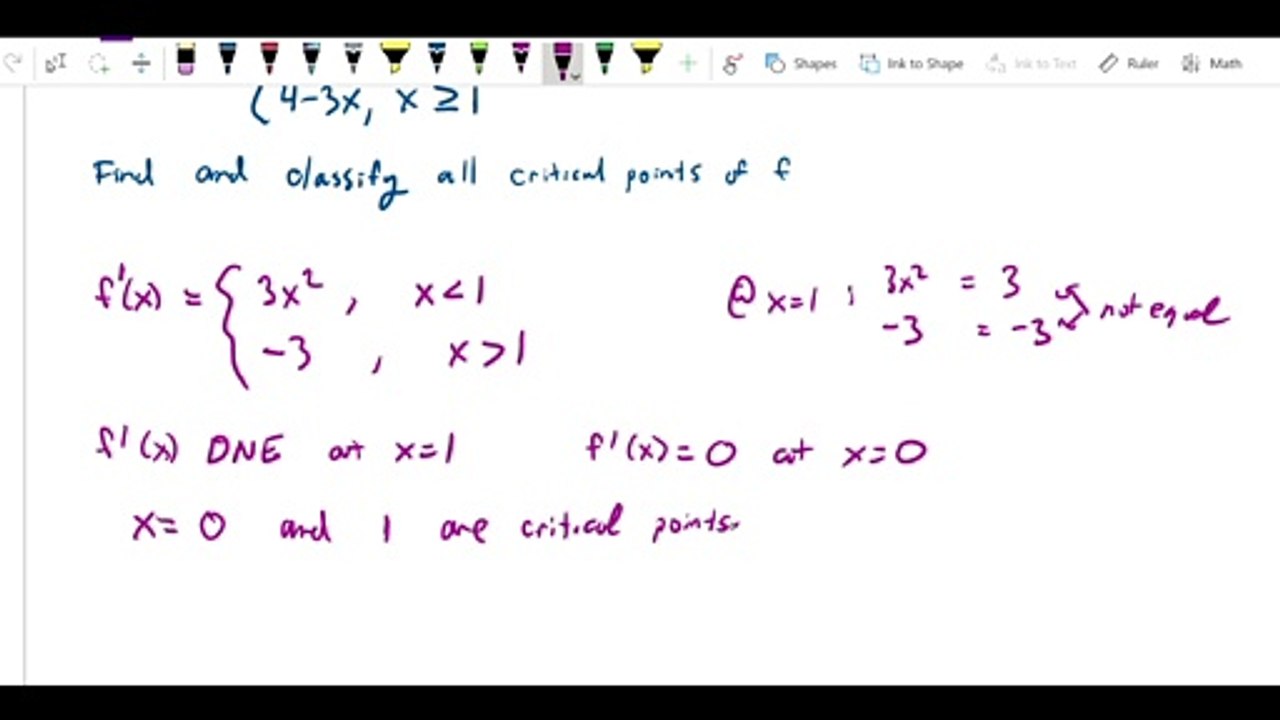 Shapes Ink to Shape Ink to Text Ruler Math
4-3x, x ≥ 1
Find and classify all critical points of f
f'(x) = { 3x², x<1
-3, x>1
@ x=1 ; 3x² = 3
-3 = -3 not equal
f'(x) DNE at x=1 f'(x)=0 at x=0
x=0 and 1 are critical points.